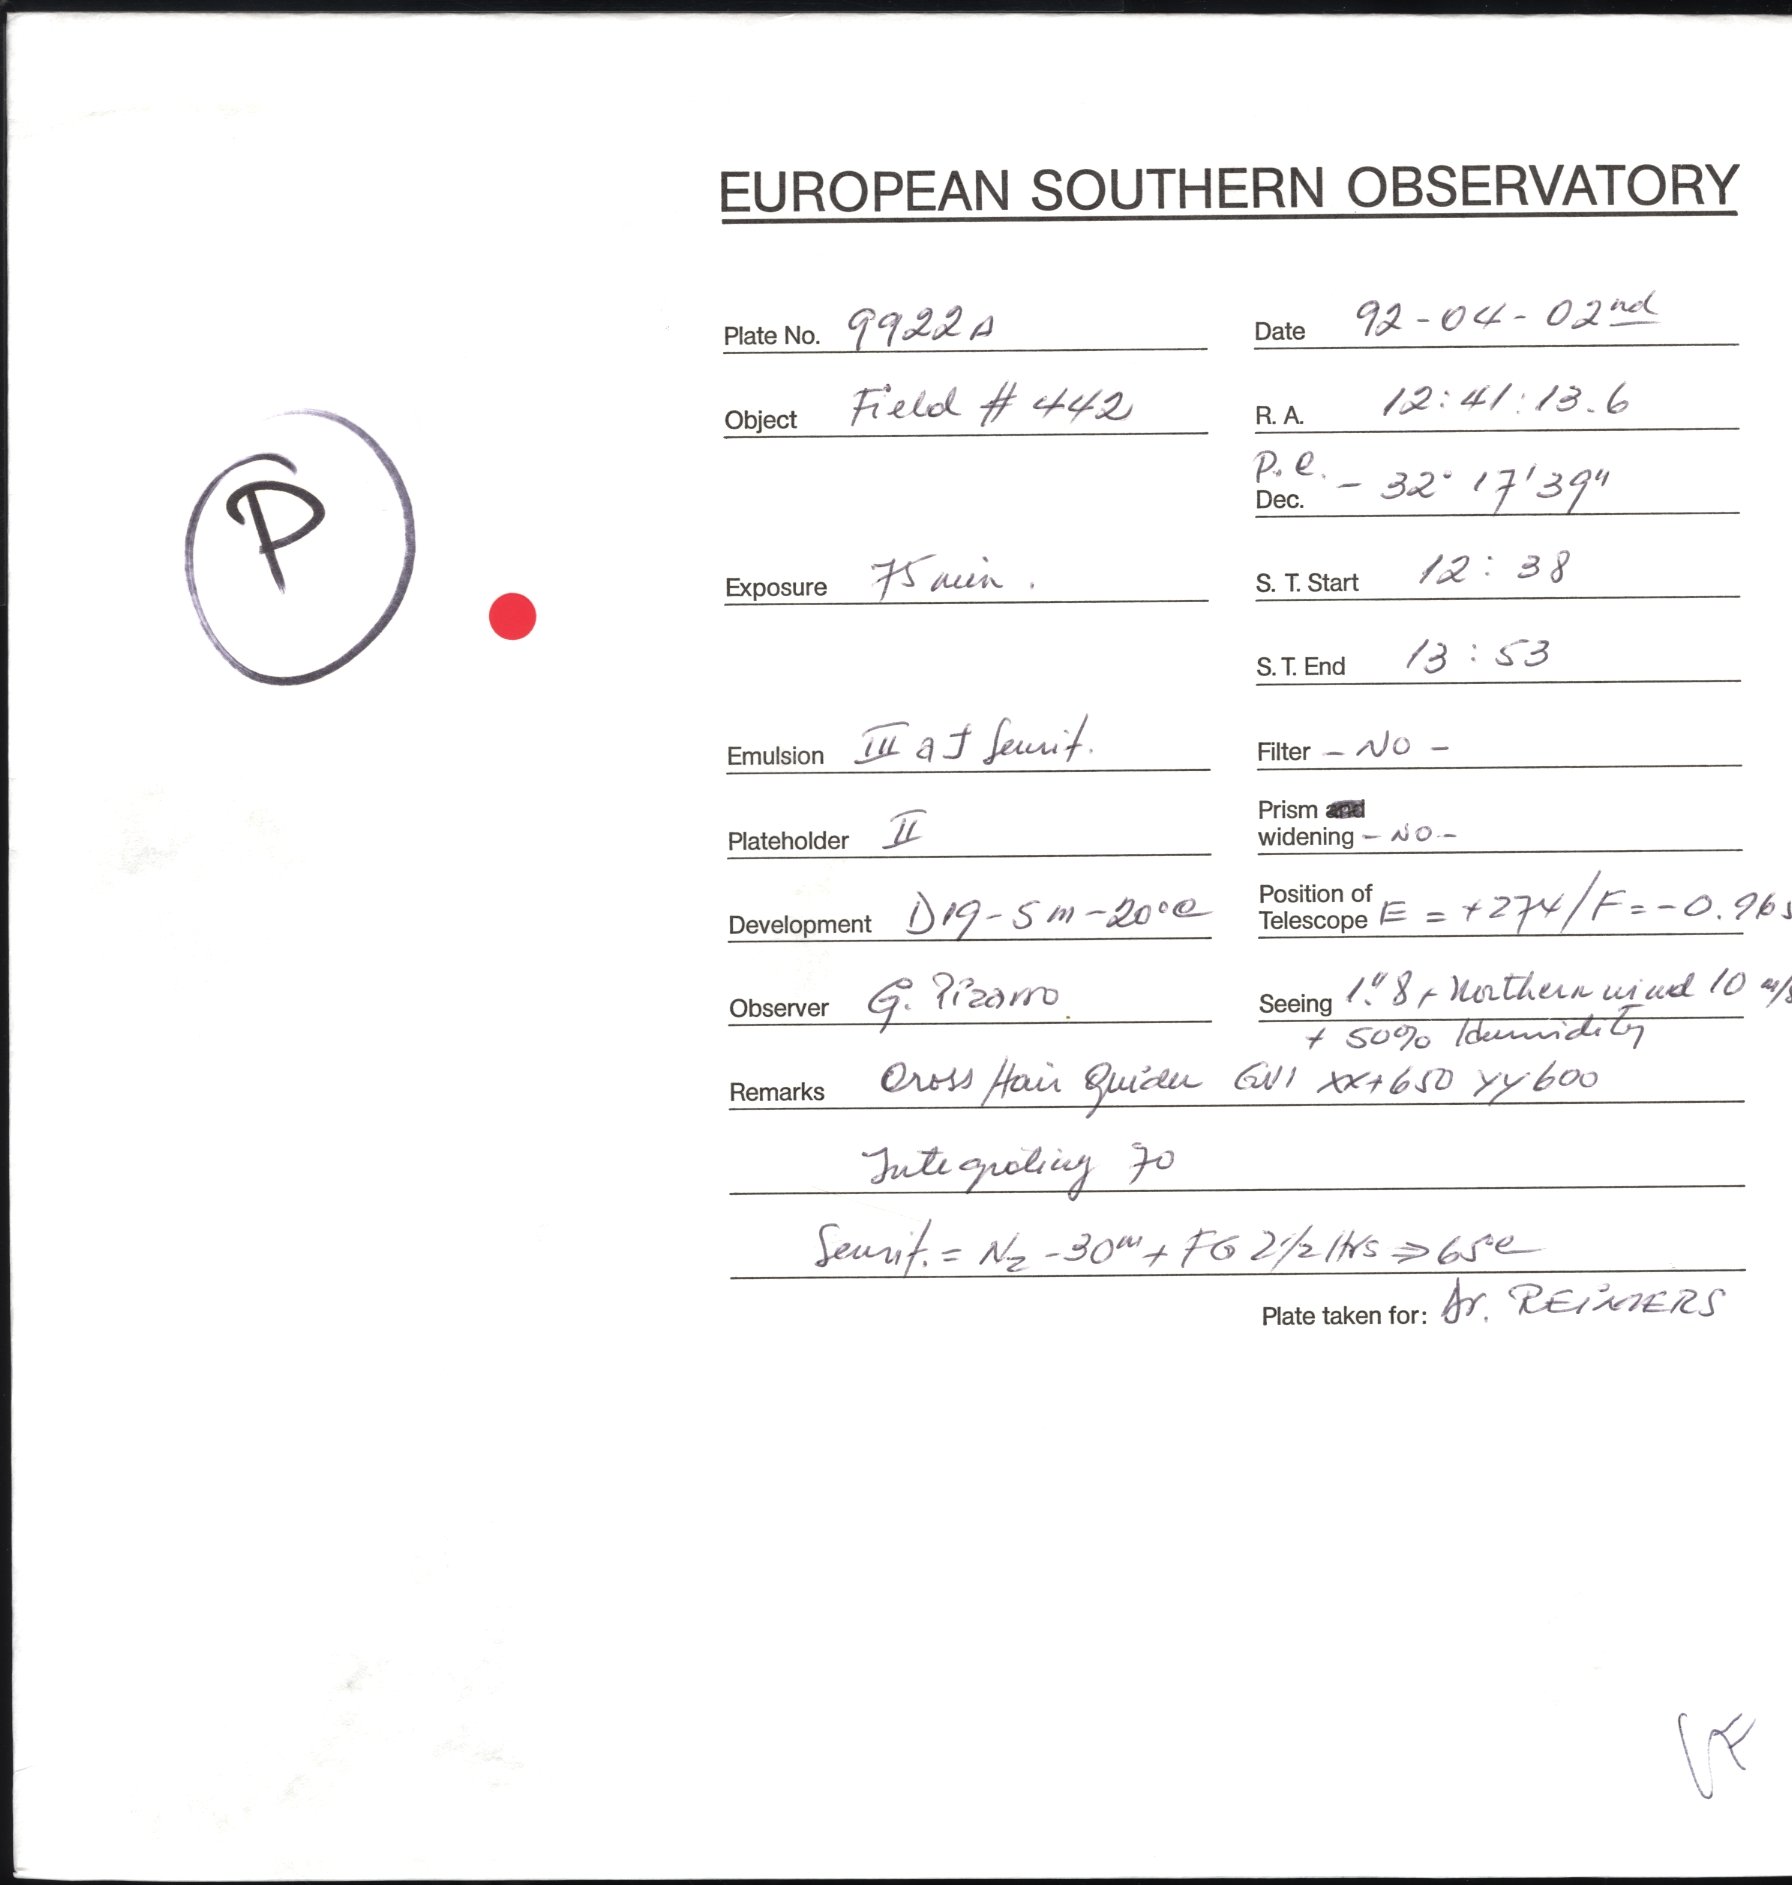 EUROPEAN SOUTHERN OBSERVATORY
Plate No. 9922A Date 92-04-02nd
Object Field # 442 R. A. 12:41:13.6
P
P.e.
Dec. - 32° 17' 39"
Exposure 75 min. S. T. Start 12:38
S. T. End 13:53
Emulsion III a J Sensit. Filter - NO -
Plateholder II Prism and
widening - NO -
Development D19-5m-20°C Position of
Telescope E = +274/F=-0.965
Observer G. Pizarro Seeing 1."8 + Northern wind 10 m/s
+ 50% Humidity
Remarks Cross Hair Guider GN1 xx+650 yy600
Integrating 70
Sensit. = N2 -30m + FG 2 1/2 Hrs => 65°C
Plate taken for: Dr. REIMERS